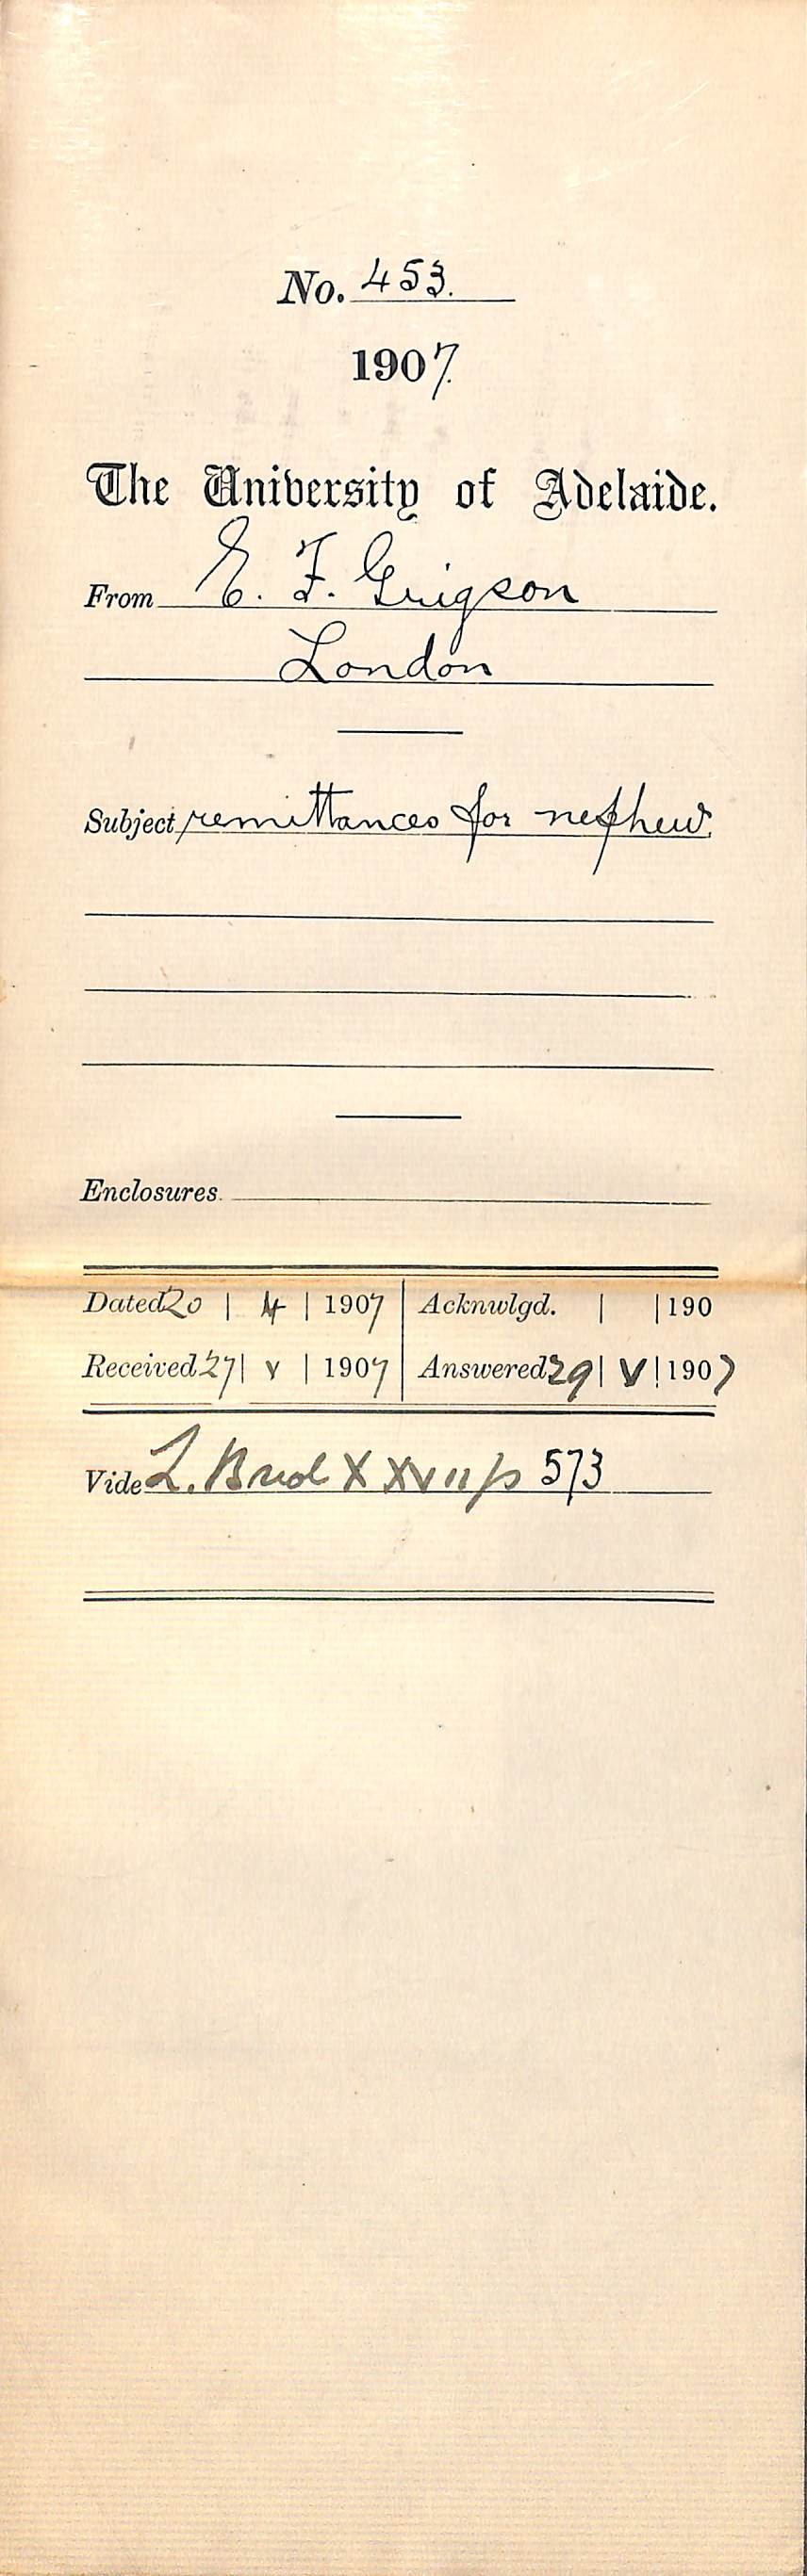 No. 453.
1907.
The University of Adelaide.
From E. F. Grigson
London
Subject remittances for nephew.
Enclosures.
Dated 20 | 4 | 1907 | Acknwlgd. | | 190
Received 27 | V | 1907 | Answered 29 | V | 1907
Vide L. XXVII p 573